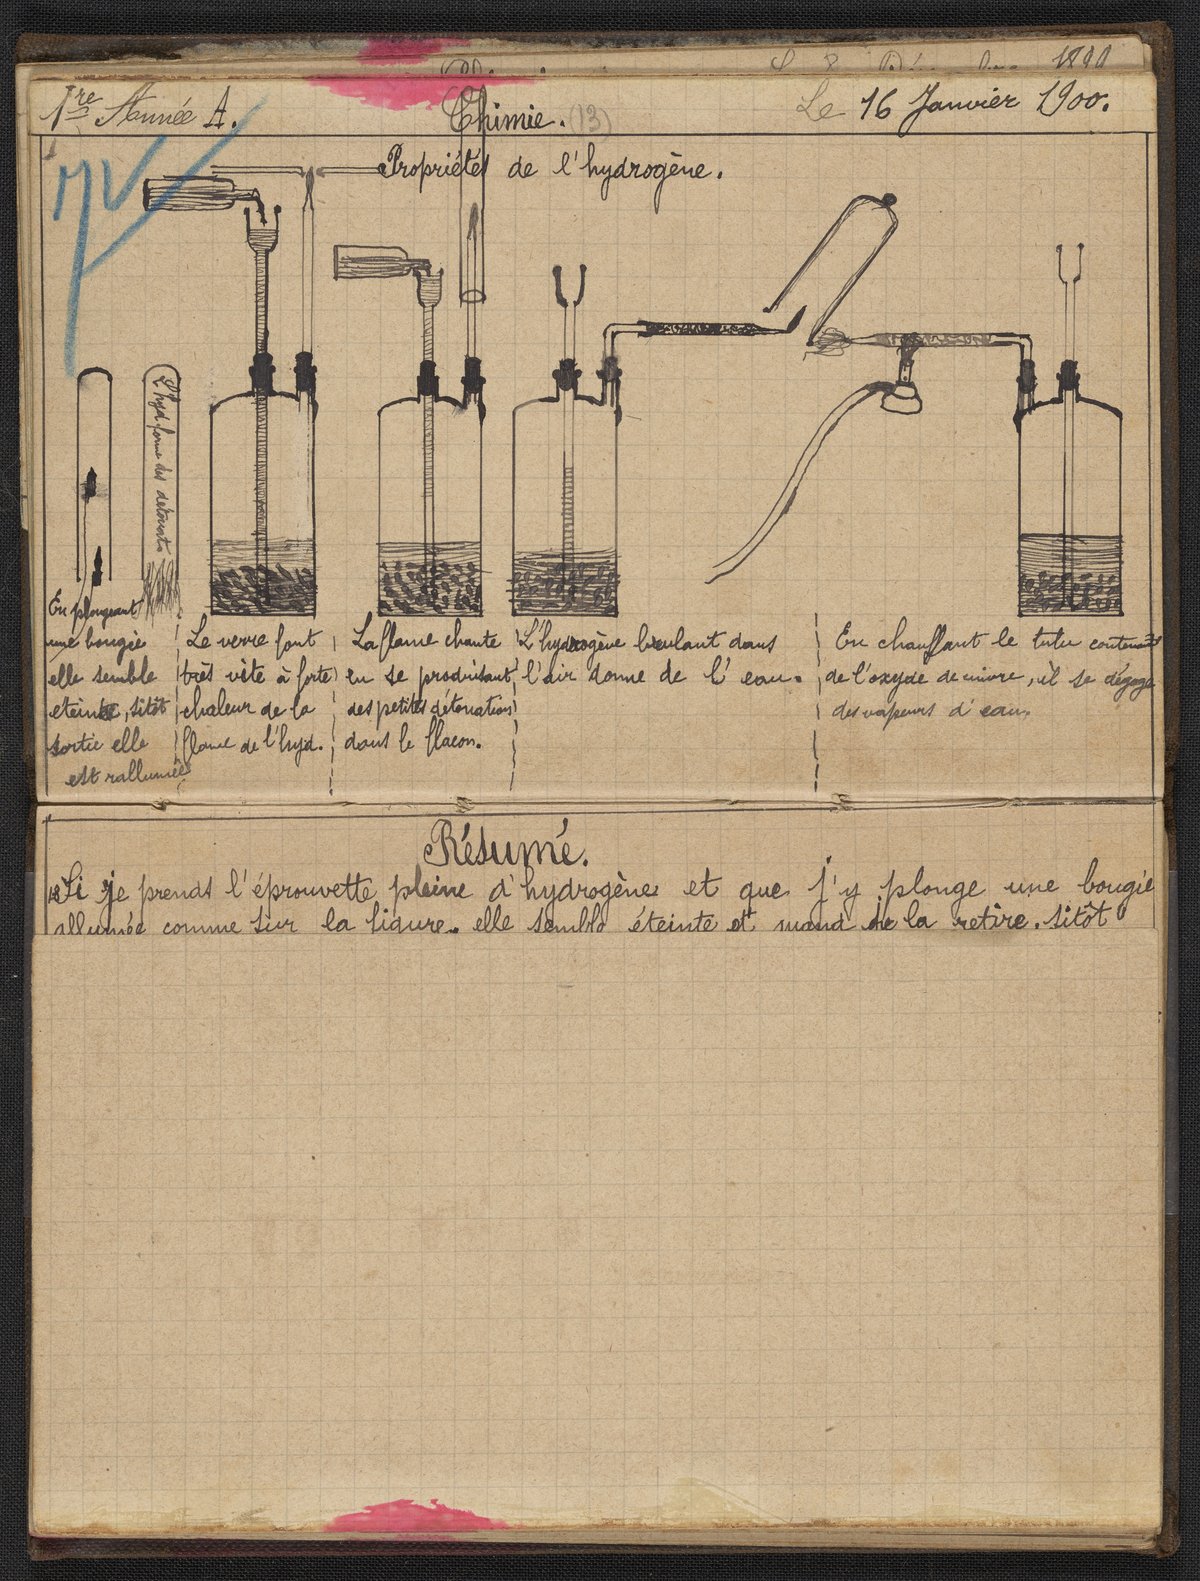 1re Année A. Chimie. (13) Le 16 Janvier 1900.
Propriétés de l'hydrogène.
L'hyd. forme des
En plongeant
une bougie
elle semble
eteinte, sitôt
sortie elle
est rallumée
Le verre font
très vite à forte
chaleur de la
flame de l'hyd.
La flame chante
en se produisant
des petites détonation
dans le flacon.
L'hydrogène brulant dans
l'air donne de l'eau.
En chauffant le tube contenant
de l'oxyde de cuivre, il se dégage
des vapeurs d'eau.
Résumé.
Si je prends l'éprouvette pleine d'hydrogène et que j'y plonge une bougie
allumée comme sur la figure. elle semble éteinte et quand je la retire. sitôt